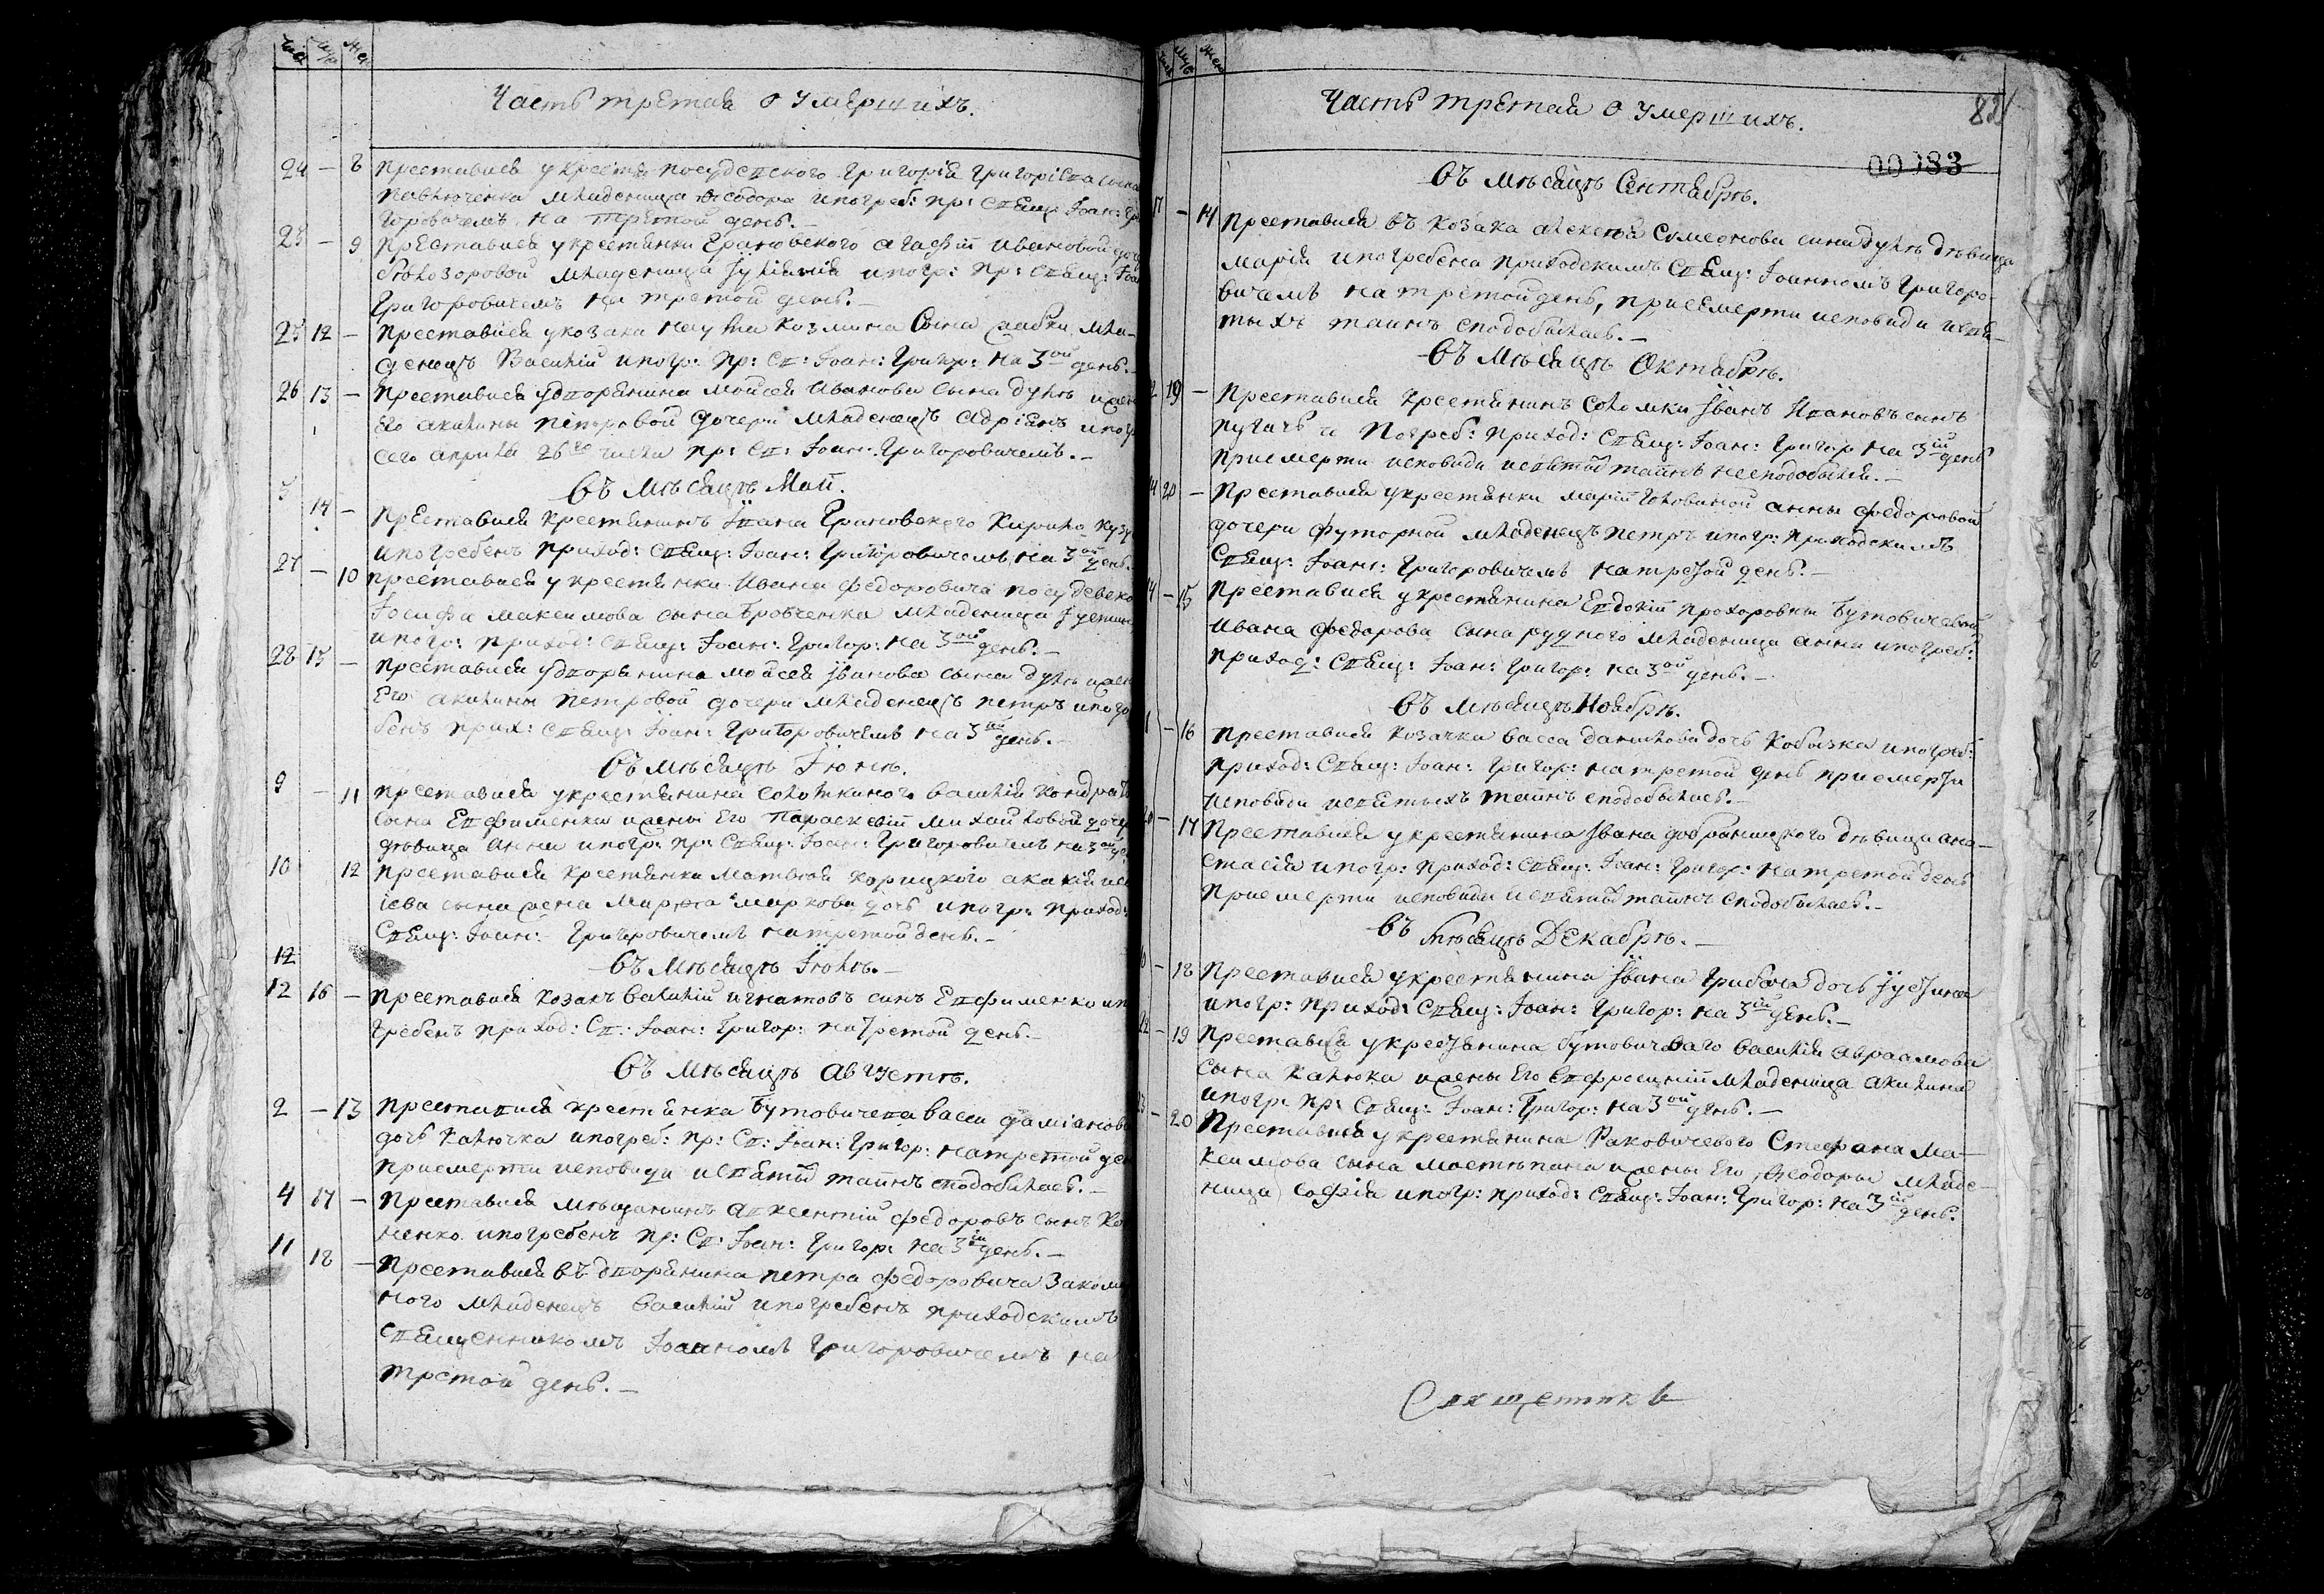 Часть третая о умершихъ.
24 — 8 Преставися у крестя посудевского Григорія Григоріева сына
Павлюченка младеница Феодора и погреб: пр: Свящ: Іоан: Гри
горовичемъ на третой день. —
25 — 9 Преставися у крестянки Грановского Агафіи Ивановой доч
Бѣлозоровой младеница Іуліанія и погр: пр: Свящ: Іоан
Григоровичемъ на третой день. —
25 12 — Преставися у козака Наума Козмина сына Савки мла-
денецъ Василій и погр: пр: Св: Іоан: Григор: на 3ой день. —
26 13 — Преставися у дворянина Мойсея Иванова сына Дулѣ и жен
его Акилины Петровой дочери младенецъ Адріанъ и погр
сего априля 26го числа пр: Св: Іоан: Григоровичемъ. —
Въ Мѣсяцѣ Маи.
3 14 — Преставися крестянинъ Івана Грановского Кирило
и погребенъ приход: Свящ: Іоан: Григоровичемъ на 3ой день.
27 — 10 Преставися у крестянки Ивана Федоровича посудевско
Іосифа Максимова сына Бровченка младеница Іустин
и погр: приход: Свящ: Іоан: Григор: на 3ой день. —
28 15 — Преставися у дворянина Мойсея Іванова сына Дулѣ и жен
его Акилины Петровой дочери младенецъ Петръ и погре
бенъ прих: Свящ: Іоан: Григоровичемъ на 3ой день. —
Въ Мѣсяцѣ Іюнѣ.
9 — 11 Преставися у крестянина Соломкиного Василія Кондрать
сына Евфименка и жены его Параскевіи Михайловой доче
дѣвица Анна и погр: пр: Свящ: Іоан: Григоровичемъ на 3ой де
10 12 Преставися крестянки Матвѣя Корицкого Акакія
іева сына жена Марфа Маркова дочь и погр: приход:
Свящ: Іоан: Григоровичемъ на третой день. —
12
Въ Мѣсяцѣ Іюлѣ. —
12 16 — Преставися козакъ Василій Игнатовъ синъ Евфименко и по
гребенъ приход: Св: Іоан: Григор: на третой день. —
Въ Мѣсяцѣ Августѣ.
2 — 13 Преставися крестянка Бутовичева Васса Даміанова
дочь Калючка и погреб: пр: Св: Іоан: Григор: на третой ден
при смерти исповиди и святыхъ таинъ сподобилась. —
4 17 — Преставися мѣщанинъ Авксентій Федоровъ сынъ Ко
ненко и погребенъ пр: Св: Іоан: Григор: на 3ій день. —
11 18 — Преставися въ дворянина Петра Федоровича Закома
ного младенецъ Василій и погребенъ приходскимъ
священникомъ Іоанномъ Григоровичемъ на
третой день. —
Часть третая о умершихъ.
82
00083
Въ Мѣсяцѣ Сентябрѣ.
17 — 14 Преставися въ козака Алексѣя Симеонова сина Дулѣ дѣвица
Марія и погребена приходскимъ Свящ: Іоанномъ Григоро-
вичемъ на третой день, при смерти исповиди и свя-
тыхъ таинъ сподобилась. —
Въ Мѣсяцѣ Октябрѣ.
2 19 — Преставися крестянинъ Соломки Іванъ Ивановъ сынъ
Пугачъ и погреб: приход: Свящ: Іоан: Григор на 3ій день
при смерти исповиди и святыхъ таинъ несподобился. —
14 20 — Преставися у крестянки Маріи Головиной Анны Федоровой
дочери Футорной младенецъ Петръ и погр: приходскимъ
Свящ: Іоан: Григоровичемъ на третой день. —
14 — 15 Преставися у крестянина Евдокіи Прохоровны Бутовичевой
Ивана Федорова сына Рудного младеница Анна и погреб:
приход: Свящ: Іоан: Григор: на 3ой день. —
Въ Мѣсяцѣ Ноябрѣ.
1 — 16 Преставися козачка Васса Данилова дочь Кобызка и погреб:
приход: Свящ: Іоан: Григор: на третой день при смерти
исповиди и святыхъ таинъ сподобилась. —
20 — 17 Преставися у крестянина Івана Добраницкого дѣвица Ана-
стасія и погр: приход: Свящ: Іоан: Григор: на третой день
при смерти исповиди и святыхъ таинъ сподобилась. —
Въ Мѣсяцѣ Декабрѣ. —
— 18 Преставися у крестянина Івана Грибача дочь Іустина
и погр: приход: Свящ: Іоан: Григор: на 3ій день. —
22 — 19 Преставися у крестянина Бутовичеваго Василія Авраамова
сына Калюка и жены его Евфросиніи младеница Акилина
и погр: пр: Свящ: Іоан: Григор: на 3ой день. —
23 — 20 Преставися у крестянина Раковичевого Стефана Ма-
ксимова сына Мостипана и жены его Феодоры младе-
ница Софія и погр: приход: Свящ: Іоан: Григор: на 3ій день.
Священникъ